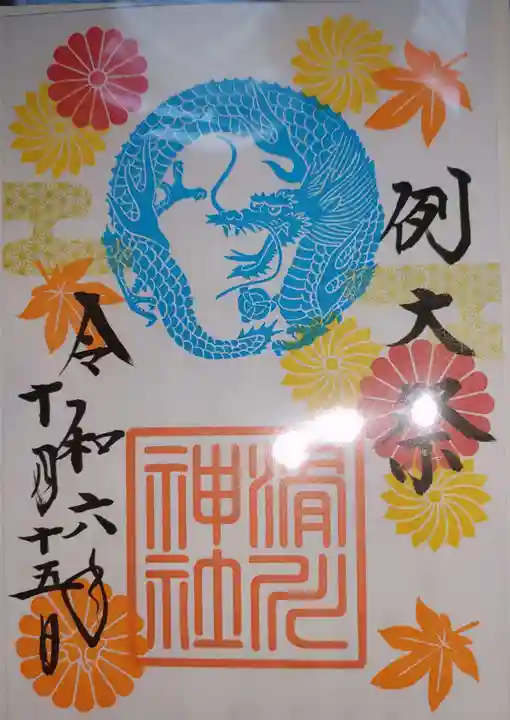 例大祭
滑川
神社
令和六年
十月十五日